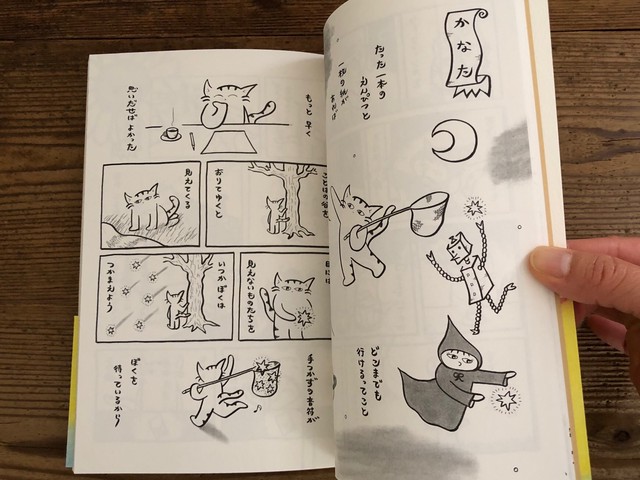 かなた
たった一本の
えんぴつと
一枚の紙が
あれば
どこまでも
行けるってこと
もっと 早く
思いだせば よかった
ことばの谷を、
おりてゆくと
見えてくる
目には
見えないものたちを
いつか ぼくは
つかまえよう
手つかずの音符が
ぼくを
待っているから